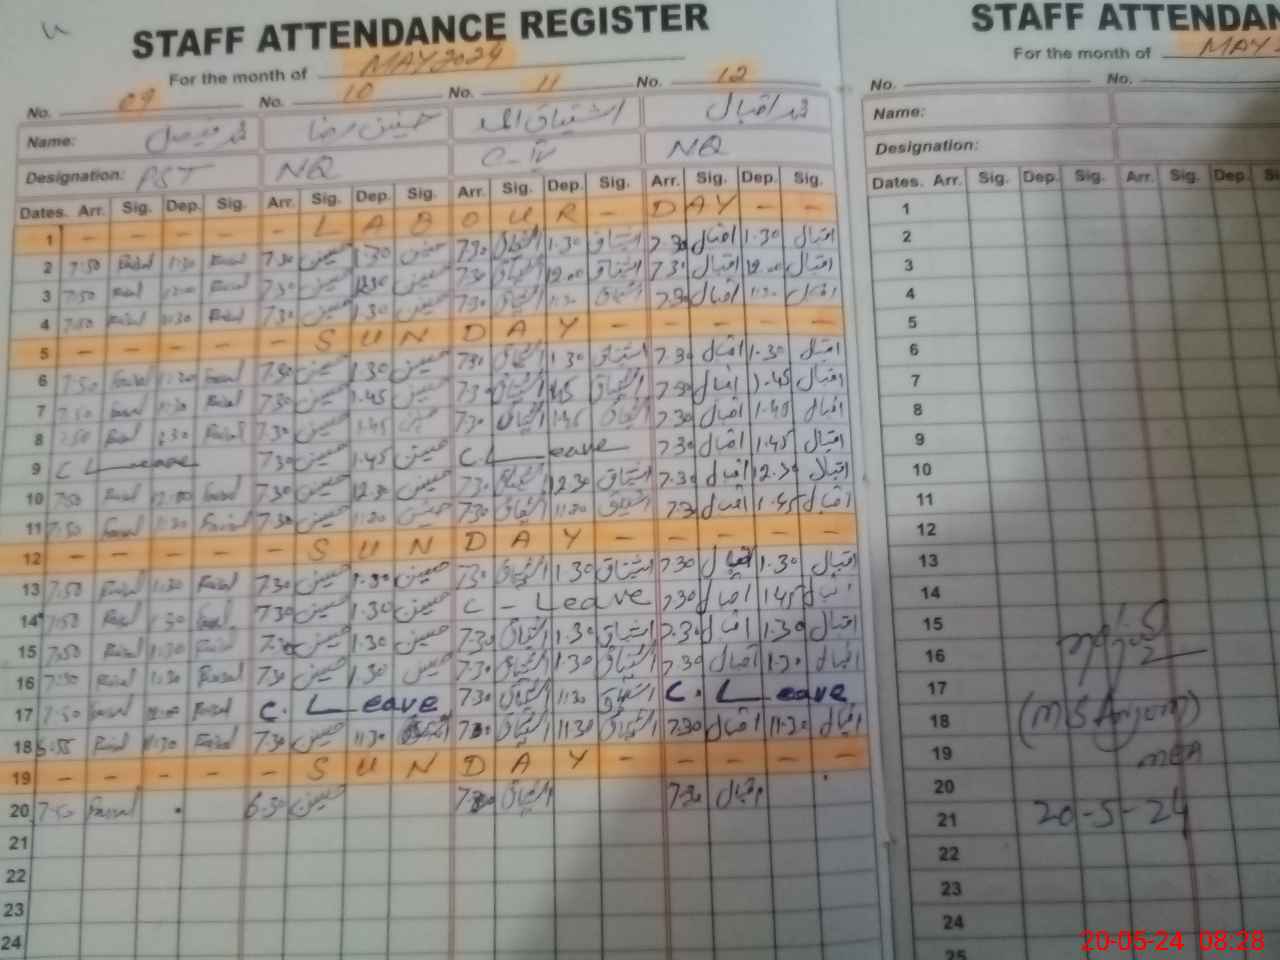 STAFF ATTENDANCE REGISTER
For the month of MAY 2024
No. 09 No. 10 No. 11 No. 12
Name: محمد فیصل حسنین رضا اشتیاق احمد محمد اقبال
Designation: PST NQ C-IV NQ
Dates. Arr. Sig. Dep. Sig. Arr. Sig. Dep. Sig. Arr. Sig. Dep. Sig. Arr. Sig. Dep. Sig.
1 - - - - - L A B O U R - D A Y - -
2 7:50 Faisal 1:30 Faisal 7.30 حسنین 1.30 حسنین 7.30 اشتیاق 1.30 اشتیاق 7.30 اقبال 1.30 اقبال
3 7:50 Faisal 12:00 Faisal 7.30 حسنین حسنین 7.30 اشتیاق 12.00 اشتیاق 7.30 اقبال 12.00 اقبال
4 7:50 Faisal 1:30 Faisal 7.30 حسنین 1.30 حسنین 7.30 اشتیاق 1:30 اشتیاق 7.30 اقبال 1:30 اقبال
5 - - - - - S U N D A Y - - - - -
6 7:50 Faisal 1:30 Faisal 7.30 حسنین 1.30 حسنین 7.30 اشتیاق 1.30 اشتیاق 7.30 اقبال 1.30 اقبال
7 7:50 Faisal 1:30 Faisal 7.30 حسنین 1.45 حسنین 7.30 اشتیاق 1.45 اشتیاق 7.30 اقبال 1.45 اقبال
8 7:50 Faisal 1:30 Faisal 7.30 حسنین 1.45 حسنین 7.30 اشتیاق 1.45 اشتیاق 7.30 اقبال 1.45 اقبال
9 C Leave 7.30 حسنین 1.45 حسنین C. Leave 7.30 اقبال 1.45 اقبال
10 7:50 Faisal 12:00 Faisal 7.30 حسنین 12.30 حسنین 7.30 اشتیاق 12.30 اشتیاق 7.30 اقبال 12.30 اقبال
11 7:50 Faisal 1:30 Faisal 7.30 حسنین 11:30 حسنین 7.30 اشتیاق 11:30 اشتیاق 7.30 اقبال 1.45 اقبال
12 - - - - - S U N D A Y - - - - -
13 7:50 Faisal 1:30 Faisal 7.30 حسنین 1.30 حسنین 7.30 اشتیاق 1.30 اشتیاق 7.30 اقبال 1.30 اقبال
14 7:50 Faisal 1:30 Faisal 7.30 حسنین 1.30 حسنین C - Leave 7.30 اقبال 1.45 اقبال
15 7:50 Faisal 1:30 Faisal 7.30 حسنین 1.30 حسنین 7.30 اشتیاق 1.30 اشتیاق 7.30 اقبال 1.30 اقبال
16 7:50 Faisal 1:30 Faisal 7.30 حسنین 1.30 حسنین 7.30 اشتیاق 1.30 اشتیاق 7.30 اقبال 1.30 اقبال
17 7:50 Faisal 12:00 Faisal C. Leave 7.30 اشتیاق 11:30 اشتیاق C. Leave
18 Faisal 11:30 Faisal 7.30 حسنین 11:30 7.30 اشتیاق 11:30 اشتیاق 7.30 اقبال 11:30 اقبال
19 - - - - - S U N D A Y - - - - -
20 7:50 Faisal 6.30 حسنین 7.30 اشتیاق 7.30 اقبال
21
22
23
24
STAFF ATTENDAN
For the month of MAY
No. No.
Name:
Designation:
Dates. Arr. Sig. Dep. Sig. Arr. Sig. Dep. Si
1
2
3
4
5
6
7
8
9
10
11
12
13
14
15
16
17
18
19
20
21
22
23
24
25
(M S Anjum)
MEA
20-5-24
20-05-24 08:28